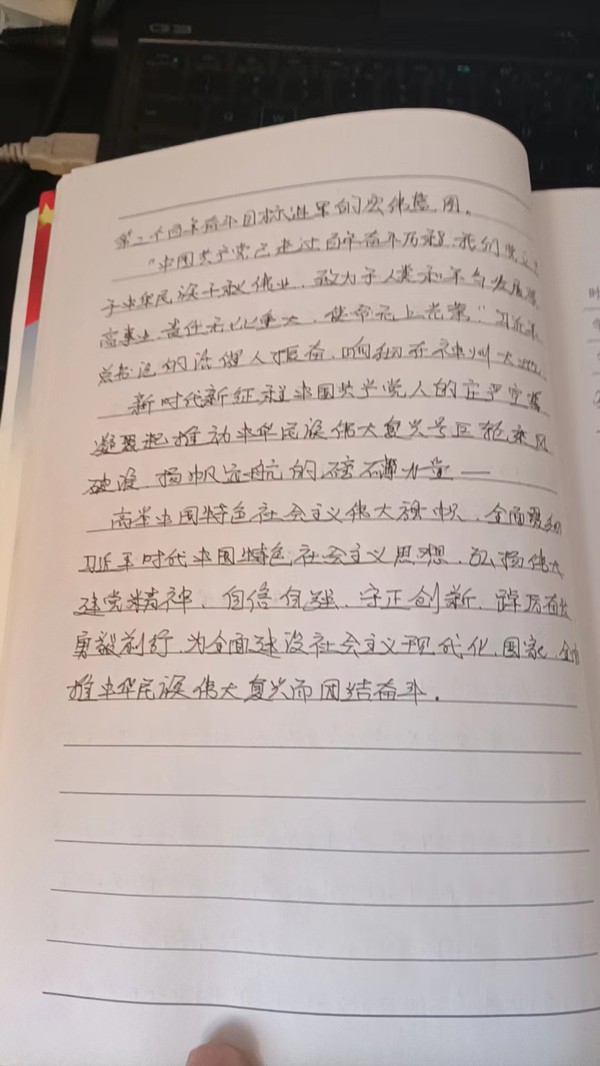 第二个百年奋斗目标进军的宏伟蓝图。
"中国共产党已走过百年奋斗历程。我们党立志
于中华民族千秋伟业，致力于人类和平与发展崇
高事业，责任无比重大，使命无上光荣。"习近平
总书记的话催人振奋，响彻在神州大地。
新时代新征程中国共产党人的庄严宣誓
凝聚起推动中华民族伟大复兴号巨轮乘风
破浪、扬帆远航的磅礴力量——
高举中国特色社会主义伟大旗帜，全面贯彻
习近平时代中国特色社会主义思想，弘扬伟大
建党精神，自信自强、守正创新，踔厉奋发
勇毅前行，为全面建设社会主义现代化国家，全面
推中华民族伟大复兴而团结奋斗。